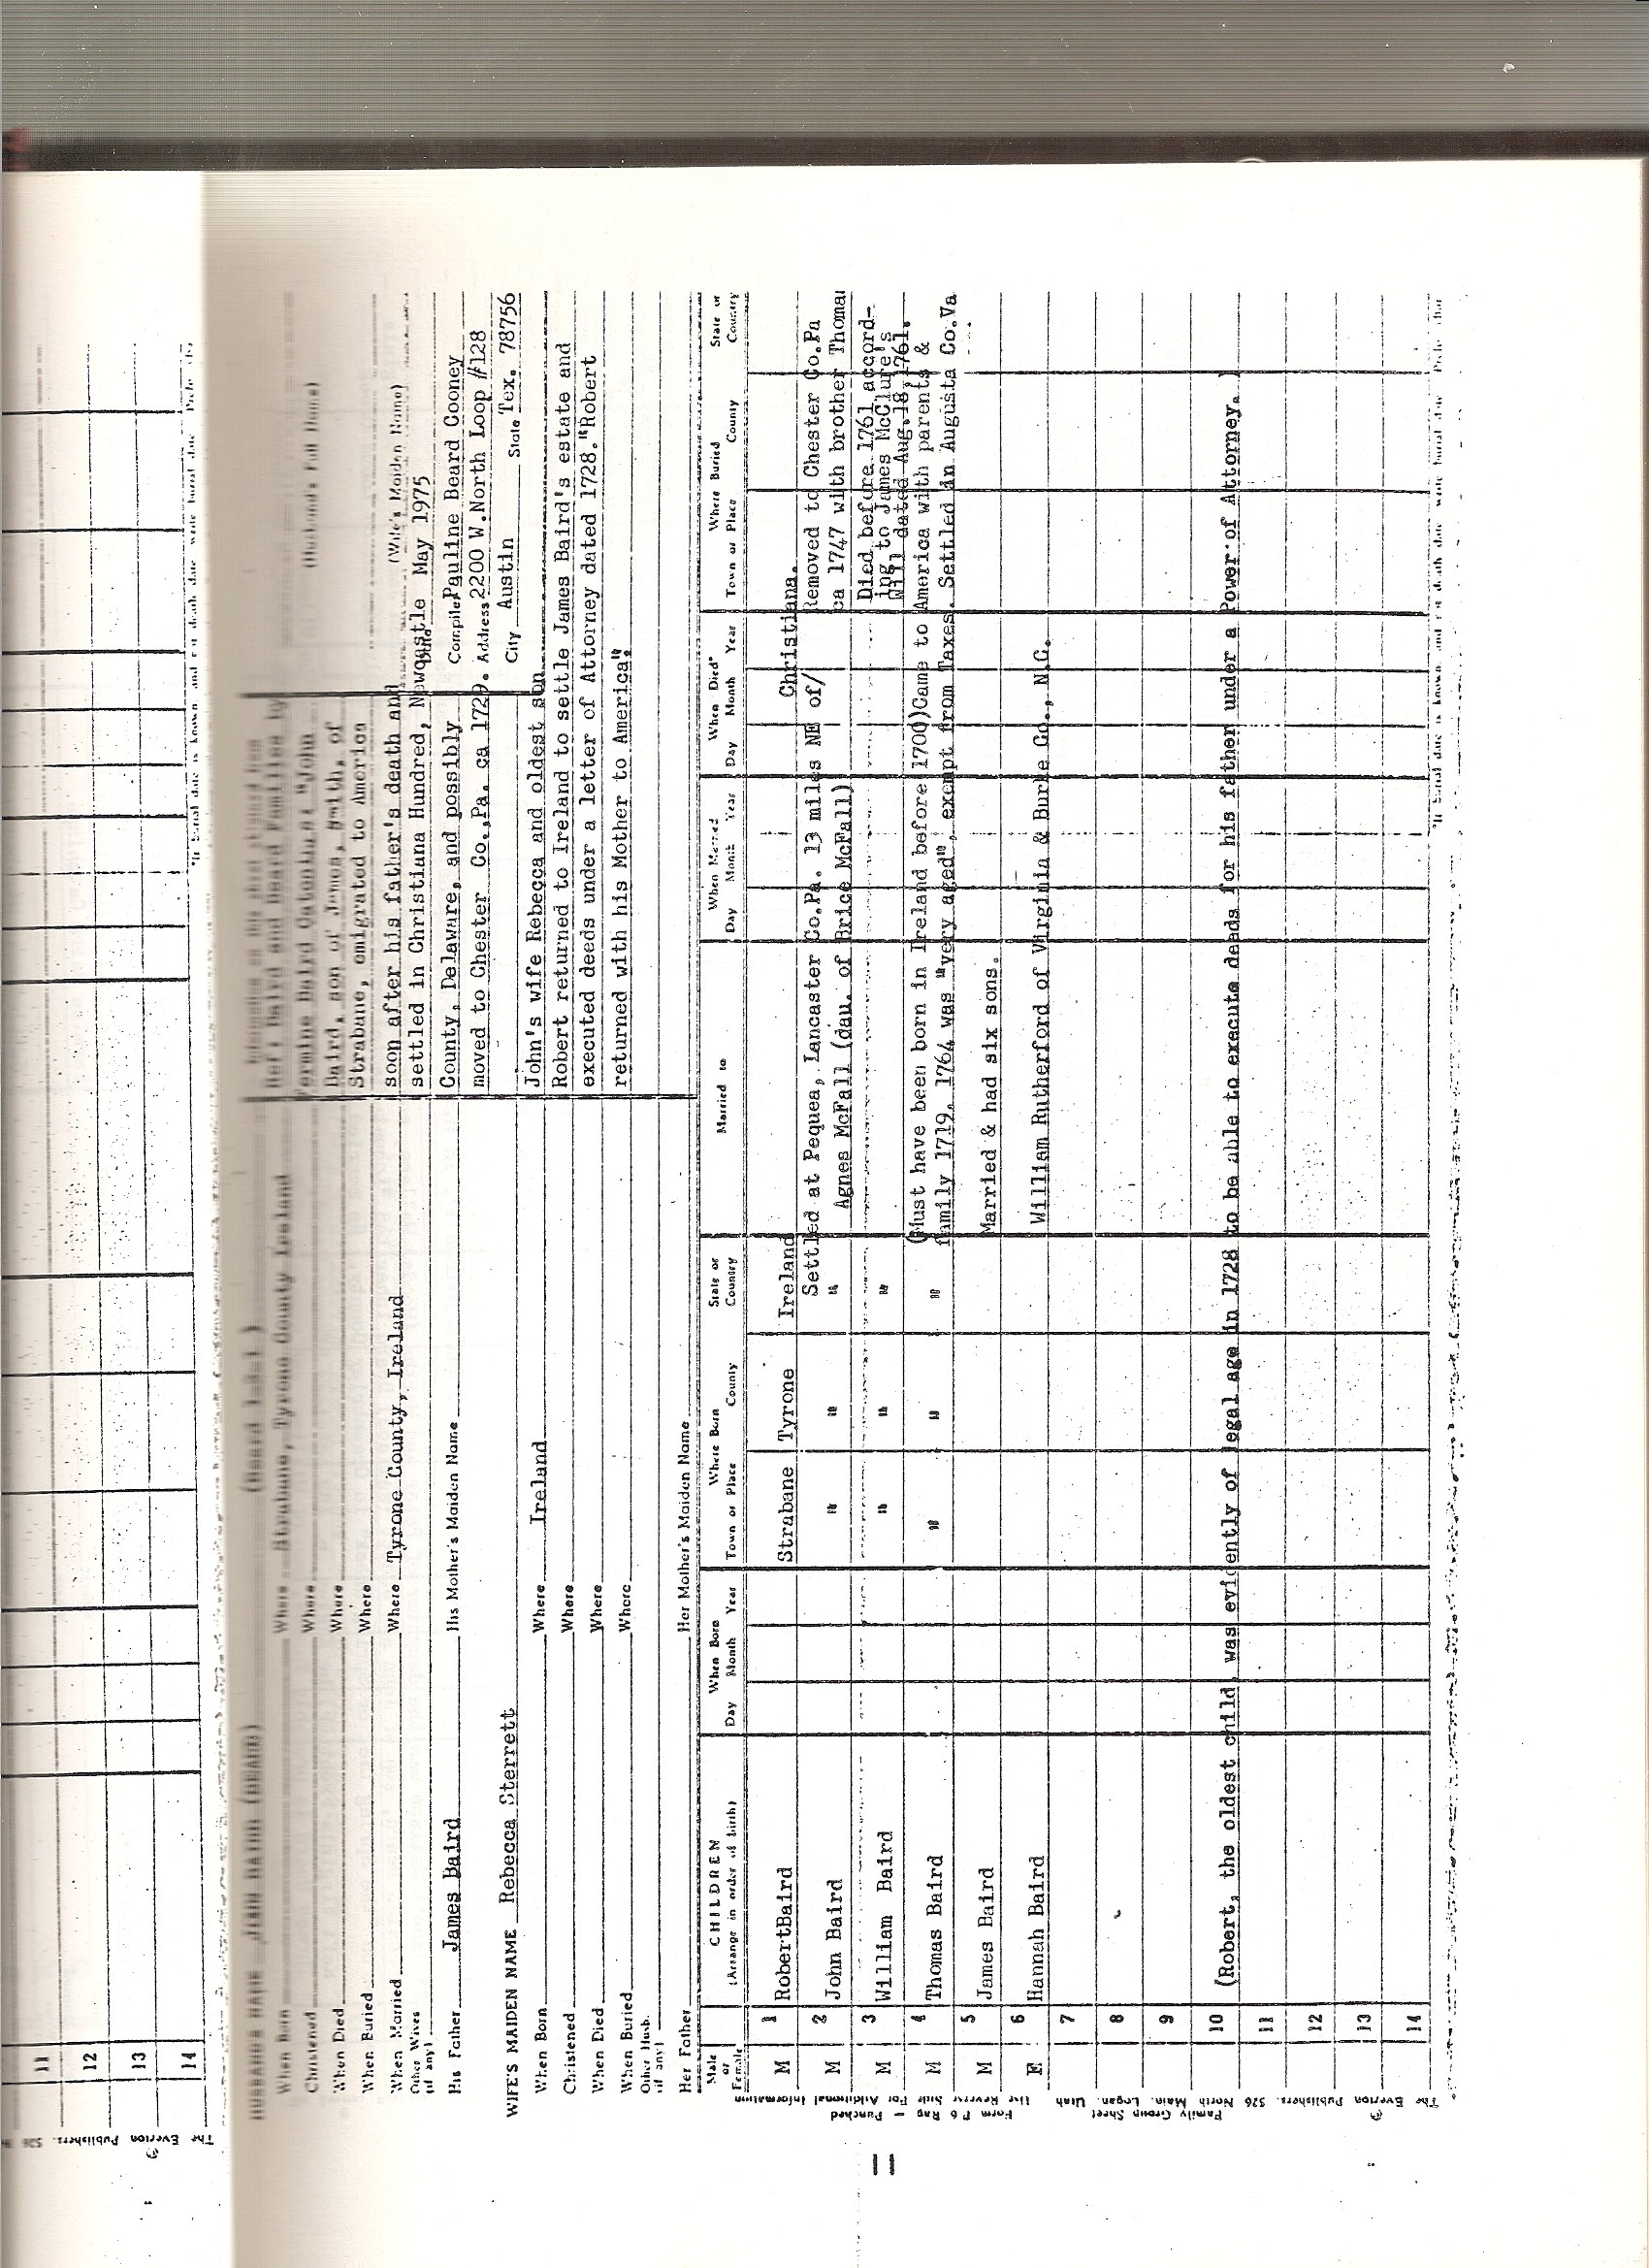 HUSBAND'S NAME JOHN BAIRD (BEARD)
When Born Where Strabane, Tyrone County Ireland
Christened Where
When Died Where
When Buried Where
When Married Where Tyrone County, Ireland
Other Wives
(if any)
His Father James Baird His Mother's Maiden Name
Ref: Baird and Beard Families by
Fermine Baird Catchings "John
Baird, son of James, Smith, of
Strabane, emigrated to America
soon after his father's death and
settled in Christiana Hundred, Newcastle
County, Delaware, and possibly
moved to Chester Co.,Pa. ca 1729.
(Husband's Full Name)
(Wife's Maiden Name)
Date May 1975
Compiler Pauline Beard Cooney
Address 2200 W.North Loop #128
City Austin State Tex. 78756
WIFE'S MAIDEN NAME Rebecca Sterrett
When Born Where Ireland
Christened Where
When Died Where
When Buried Where
Other Husb.
(if any)
Her Father Her Mother's Maiden Name
John's wife Rebecca and oldest son
Robert returned to Ireland to settle James Baird's estate and
executed deeds under a letter of Attorney dated 1728."Robert
returned with his Mother to America".
Male or Female
CHILDREN
(Arrange in order of birth)
When Born
Day Month Year
Where Born
Town or Place County State or Country
Married to
When Married
Day Month Year
When Died*
Day Month Year
Where Buried
Town or Place County State or Country
M 1 RobertBaird Strabane Tyrone Ireland Christiana.
Settled at Pequea, Lancaster Co.Pa. 13 miles NE of/ Removed to Chester Co.Pa
M 2 John Baird " " " Agnes McFall (dau. of Brice McFall) ca 1747 with brother Thomas
M 3 William Baird " " " Died before 1761 accord-
ing to James McClure's
Will dated Aug.18,1761.
(Must have been born in Ireland before 1700)Came to America with parents &
M 4 Thomas Baird " " " family 1719. 1764 was "very aged", exempt from Taxes. Settled in Augusta Co.Va
M 5 James Baird Married & had six sons.
F 6 Hannah Baird William Rutherford of Virginia & Burke Co., N.C.
7
8
9
10 (Robert, the oldest child, was evidently of legal age in 1728 to be able to execute deeds for his father under a Power of Attorney.)
11
12
13
14
Form P 6 Reg — Punched
Use Reverse Side For Additional Information
Family Group Sheet
The Everton Publishers, 526 North Main, Logan, Utah
11
11
12
13
14
The Everton Publishers, 526